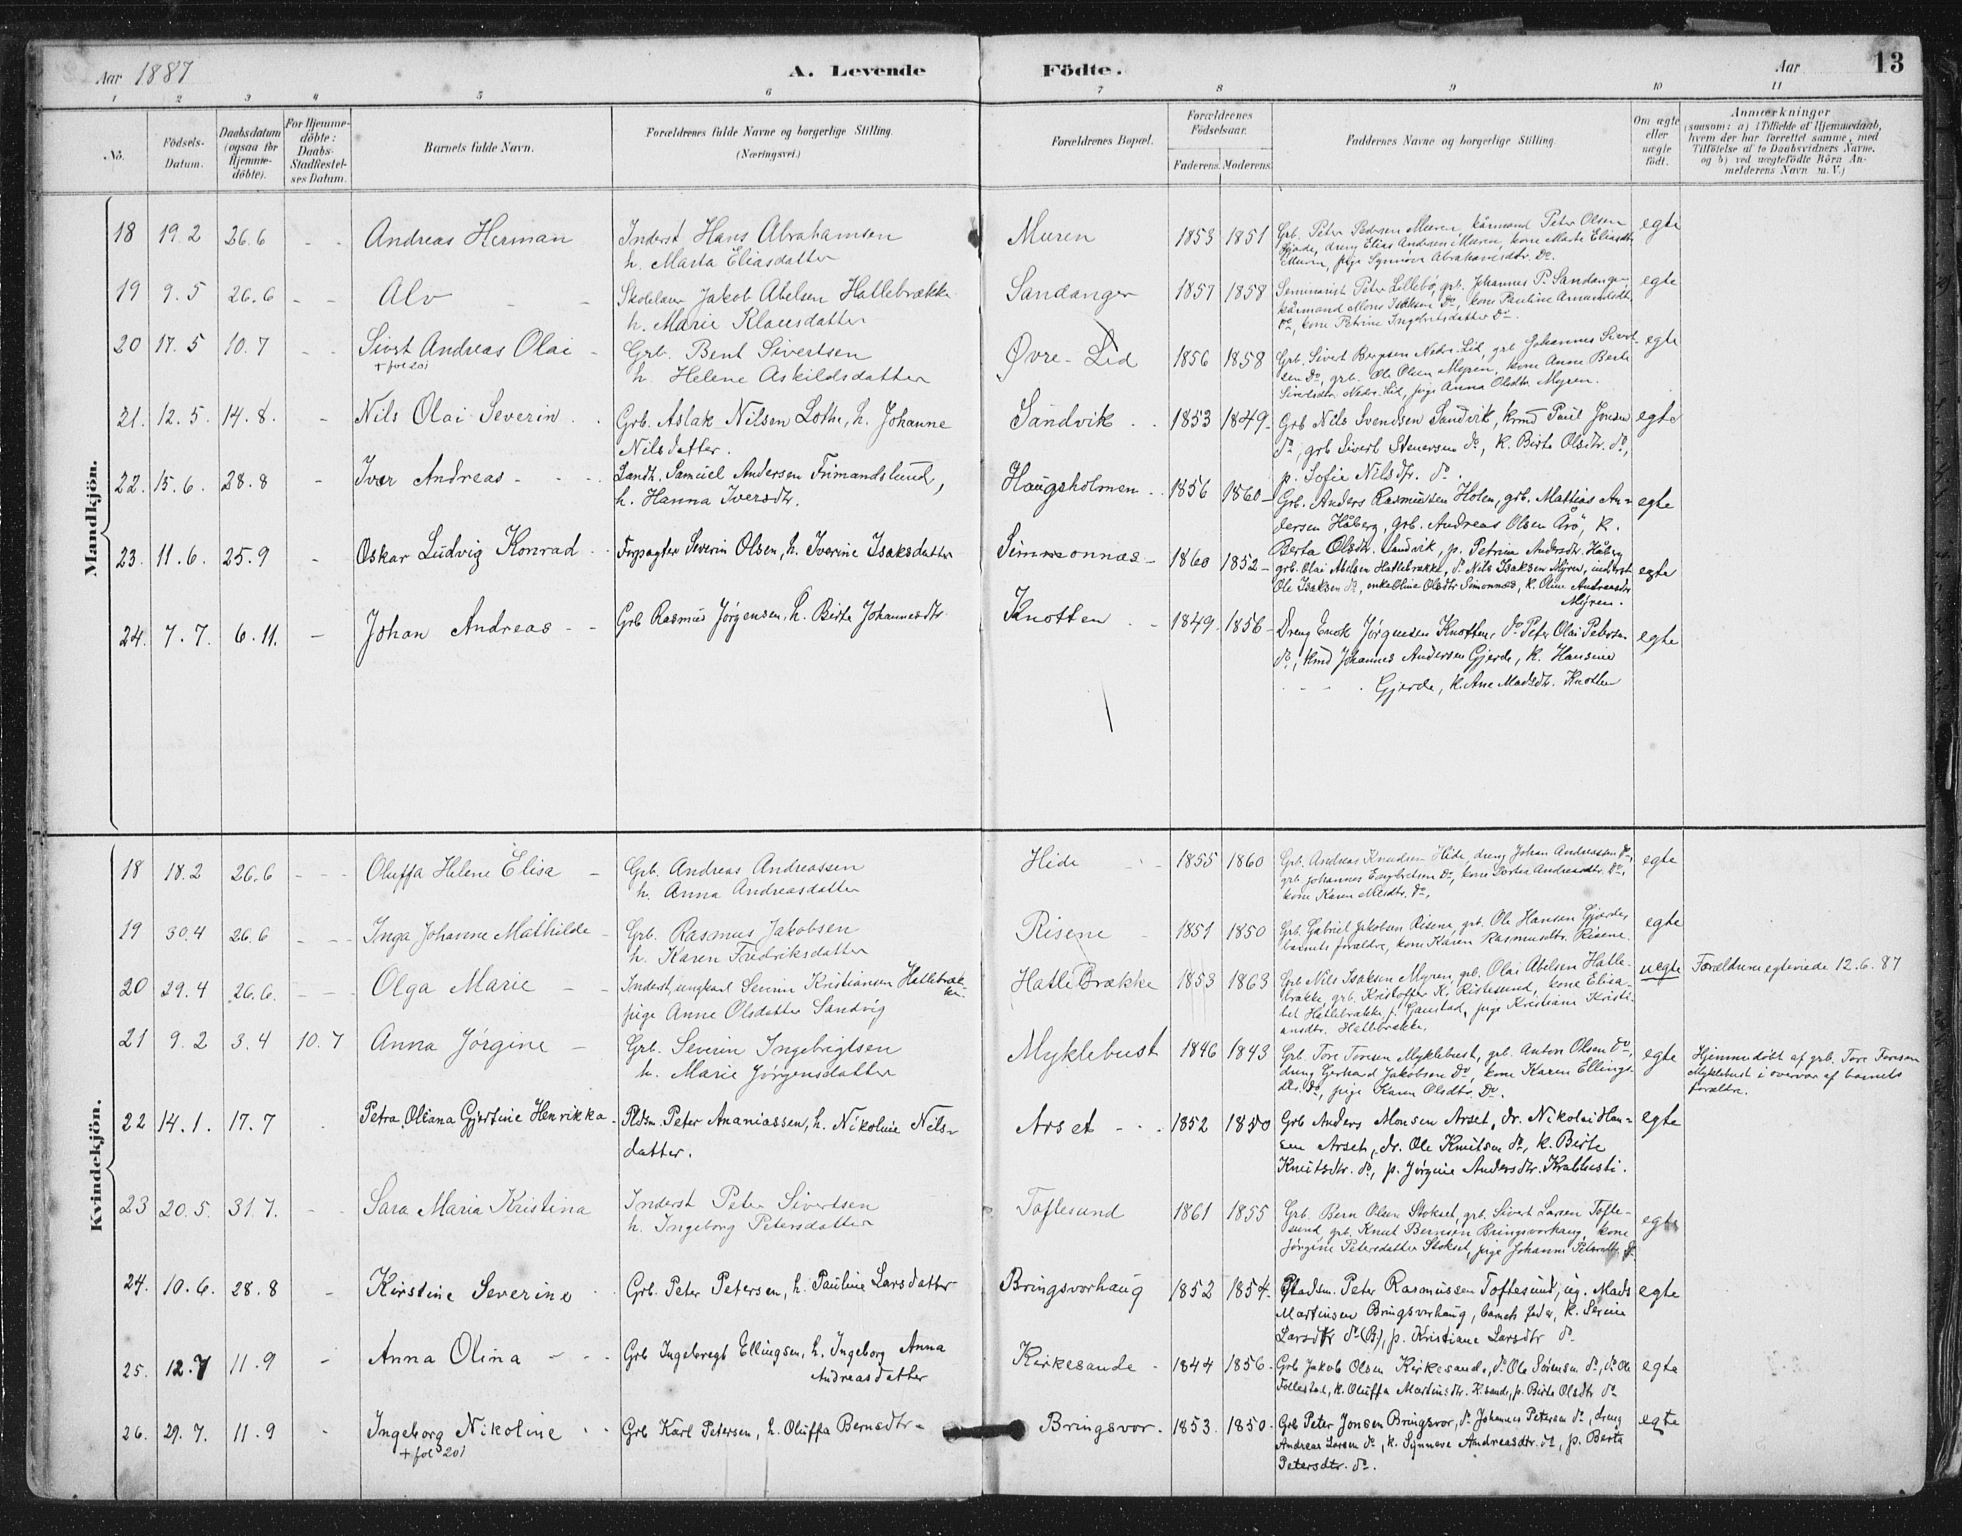 Aar 1887
A. Levende Födte.
Aar 13
1 2 3 4 5 6 7 8 9 10 11
No.
Födsels-Datum.
Daabsdatum (ogsaa for Hjemme-döbte).
For Hjemme-döbte: Daabs-Stadfæstel-ses Datum.
Barnets fulde Navn.
Forældrenes fulde Navne og borgerlige Stilling. (Næringsvei.)
Forældrenes Bopæl.
Forældrenes Födselsaar.
Faderens. Moderens.
Faddernes Navne og borgerlige Stilling.
Om ægte eller uægte födt.
Anmærkninger
(saasom: a) i Tilfælde af Hjemmedaab,
hvem der har forrettet samme, med
Tilföielse af to Daabsvidners Navne.
og b) ved uægtefödte Börn An-
melderens Navn m. V.)
Mandkjön.
18 19.2 26.6 - - Andreas Herman Inderst Hans Abrahamsen
h. Marta Eliasdatter
Muren 1853 1851 Grb. Peter Pedersen Muren, kårmand Peter Olsen
Gjerde, dreng Elias Andersen Muren, kone Marte Eliasdtr
Muren, pige Synnøve Abrahamsdtr. Do.
egte
19 9.5 26.6 - - Alv - - Skolelærer Jakob Abelsen Hatlebrække
h. Marie Klausdatter
Sandanger 1857 1858 Seminarist Peter Lillebø, grb. Johannes P. Sandanger,
kårmand Mons Isaksen Do, kone Pauline Amandsdtr
Do, kone Petrine Ingebrigtsdatter Do
egte
20 17.5 10.7 - - Sivert Andreas Olai -
+ fol 201
Grb. Bent Sivertsen
h. Helene Askildsdatter
Øvre-Lid 1856 1858 Grb. Sivert Berntsen Nedre-Lid, grb Johannes Sivert-
sen Do, grb. Ole Olsen Myren, kone Anne Berte
Sivertsdtr. Nedre-Lid, pige Anna Olsdtr Myren.
egte
21. 12.5. 14.8. - Nils Olai Severin . . Grb. Aslak Nilsen Lothe, h. Johanne
Nilsdatter.
Sandvik . . 1853 1849. Grb Nils Svendsen Sandvik, kmd Paul Jonsen
do, grb Sivert Steversen do, k. Berte Olsdtr. do,
p. Sofie Nilsdtr. do.
egte
22. 15.6. 28.8 - Iver Andreas - - - Landh. Samuel Andersen Frimandslund,
h. Hanna Iversdtr.
Haugsholmen . . 1856 1860- Grb. Anders Rasmussen Holen, grb. Mattias An-
dersen Håberg, grb. Andreas Olsen Arö, k.
Berta Olsdtr. Sandvik, p. Petrine Andersdtr. Håberg
egte
23. 11.6. 25.9 - Oskar Ludvig Konrad . . Forpagter Severin Olsen, h. Iverine Isaksdatter
Simmonnæs - 1860 1852- grb. Olai Abelsen Hatlebrække, do Nils Isaksen Myren, inderst
Ole Isaksen do, enke Oline Olsdtr Simonnæs, k. Oline Andreasdtr
Myren.
egte
24. 7.7. 6.11. - Johan Andreas - - Grb Rasmus Jørgensen, h. Berte Johannesdtr
Knotten . - 1849. 1856- Dreng Enok Jørgensen Knotten, do Peter Olai Petersen
do, kmd Johannes Andersen Gjerde, k. Hansine
. - - . Gjerde, k. Ane Madsdtr. Knotten
egte
Kvindekjön.
18 18.2 26.6 - - - Oluffa Helene Elisa - Grb. Andreas Andreassen
h. Anna Andreasdatter
Hide - - 1855 1860 Grb. Andreas Knudsen Hide, dreng Johan Andreassen Do,
grb. Johannes Engebretsen Do, kone Dortea Andreasdtr. Do,
kone Karen Nilsdtr. Do,
egte
19 30.4 26.6 - - - Inga Johanne Mathilde - Grb. Rasmus Jakobsen
h. Karen Fredriksdatter
Risene - 1851 1850 Grb. Gabriel Jakobsen Risene, grb. Ole Hansen Gjærde,
barnets forældre, kone Karen Rasmusdtr. Risene.
egte
20 29.4 26.6. - - - Olga Marie - - Inderst, ungkarl Severin Kristiansen Hatlebræk-
ke
pige Anne Olsdatter Sandvig
Hatlebrække 1853 1863 Grb Nils Isaksen Myren, grb. Olai Abelsen Hatle-
brække, grb. Kristoffer K. Ristesund, kone Elisa-
bet Hatlebrække, p. Gaustad, pige Kristiane Kristi-
ansdtr. Hatlebrække.
uegte Forældrene egteviede 12.6.87
21 9.2 3.4 10.7 Anna Jørgine - Grb. Severin Ingebrigtsen
h. Marie Jørgensdatter
Myklebust 1846 1843 Grb. Tore Toresen Myklebust, grb. Anton Olsen Do,
dreng Gerhard Jakobsen Do, kone Karen Ellings-
dtr. Do, pige Karen Olsdtr. Do.
egte Hjemmedøbt af grb. Tore Toresen
Myklebust i overvær af barnets
forældre.
22 14.1. 17.7 Petra Oliana Gjertine Henrikka. Pldsm. Peter Ananiassen, h. Nikoline Nils-
datter.
Arset - - . 1852 1850 Grb Anders Monsen Arset, dr. Nikolai Han-
sen Arset, dr. Ole Knutsen do, k. Berte
Knutsdtr. do, p. Jørgine Andersdtr. Krabbesti.
egte
23 20.5. 31.7. - - Sara Maria Kristina Inderst Peter Sivertsen
h. Ingeborg Petersdatter
Toftesund 1861 1855 Grb. Bern Olsen Stokset, grb. Sivert Larsen Tofte-
sund, grb. Knut Berntsen Bringsvorhaug, kone
Jørgine Petersdatter Stokset, pige Johanne Petersdtr. do
egte
24. 10.6. 28.8 - Kirstine Severine . Grb. Peter Petersen, h. Pauline Larsdatter
Bringsvorhaug 1852 1854. Pladsm. Peter Rasmussen Toftesund, ug. Mads
Martinsen Bringsvorhaug, barnets fader, k. Serine
Larsdtr do (B), p. Kristiane Larsdtr do.
egte
25. 12.7 11.9 - Anna Olina - - . Grb Ingebregt Ellingsen, h. Ingeborg Anna
Andreasdatter
Kirkesande - 1844 1856. Grb Jakob Olsen Kirkesande, do Ole Sørensen do, do Ole
Follestad, k. Oluffa Martinsdtr. K.sande, p. Berte Olsdtr do
egte
26. 29.7. 11.9 - Ingeborg Nikoline . .
+ fol 201
Grb Karl Petersen, h. Oluffa Bernsdtr -
Bringsvor. 1853. 1850. Grb Peter Jonsen Bringsvor, do Johannes Petersen do, dreng
Andreas Larsen do, k. Synneve Andreasdtr. do, p. Berta
Petersdtr. do.
egte